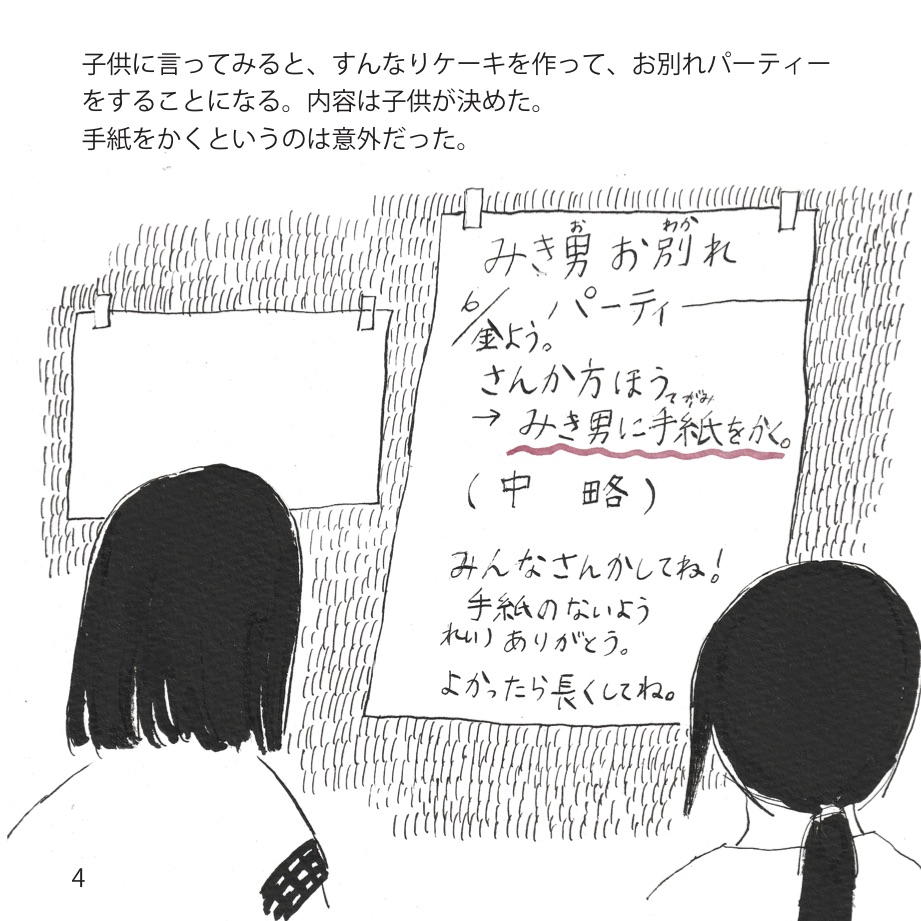 子供に言ってみると、すんなりケーキを作って、お別れパーティー
をすることになる。内容は子供が決めた。
手紙をかくというのは意外だった。
みき男お別れ
お わか
6/ パーティー
金よう。
さんか方ほう
→ みき男に手紙をかく。
てがみ
(中 略)
みんなさんかしてね!
手紙のないよう
れい) ありがとう。
よかったら長くしてね。
4